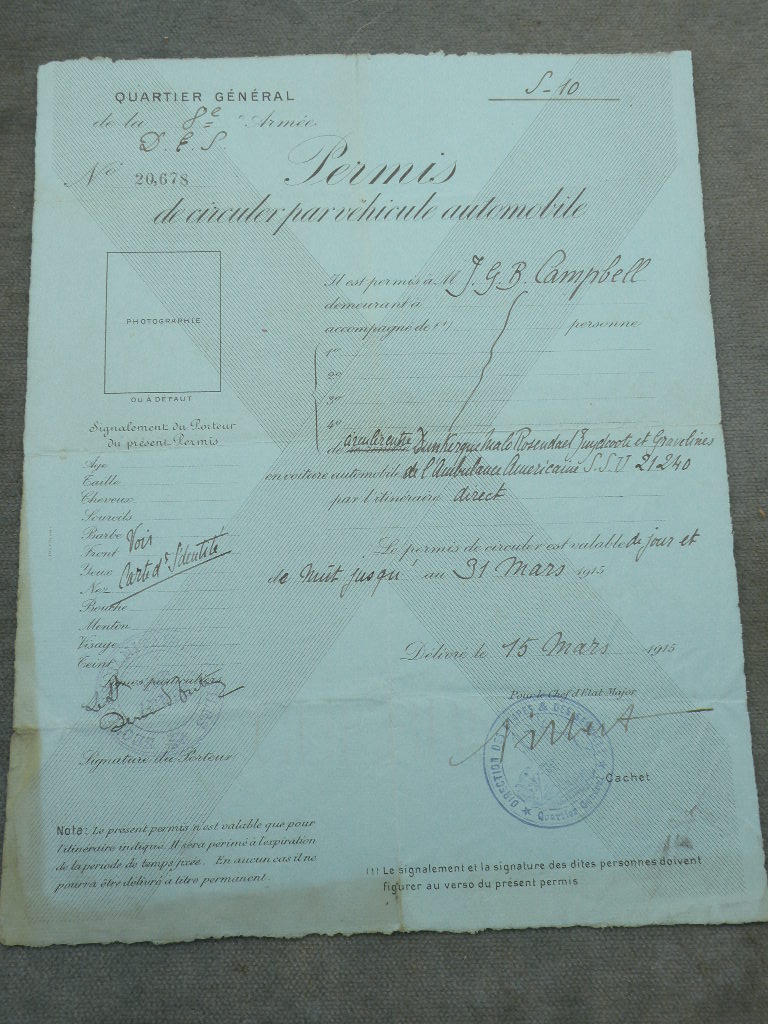 QUARTIER GÉNÉRAL
S-10
de la 8e Armée
D. E. S.
No 20,678
Permis
de circuler par véhicule automobile
PHOTOGRAPHIE
OU À DÉFAUT
Signalement du Porteur
du présent Permis
Age
Taille
Cheveux
Sourcils
Barbe
Front
Yeux
Nez
Bouche
Menton
Visage
Teint
Voir
Carte d'Identité
Signes particuliers
Signature du Porteur
Il est permis à M J. G. B. Campbell
demeurant à
accompagné de (1) personne
1o
2o
3o
4o
de circuler entre Dunkerque Malo Rosendael Zuydcoote et Gravelines
en voiture automobile de l'Ambulance Americaine S.S.U 21240
par l'itinéraire direct
Le permis de circuler est valable de jour et
de Nuit jusqu' au 31 Mars 1915
Délivré le 15 Mars 1915
Pour le Chef d'État-Major
DIRECTION DES ÉTAPES & DES
Quartier Général
Cachet
Nota: Le présent permis n'est valable que pour
l'itinéraire indiqué. Il sera périmé à l'expiration
de la période de temps fixée. En aucun cas il ne
pourra être délivré à titre permanent.
(1) Le signalement et la signature des dites personnes doivent
figurer au verso du présent permis